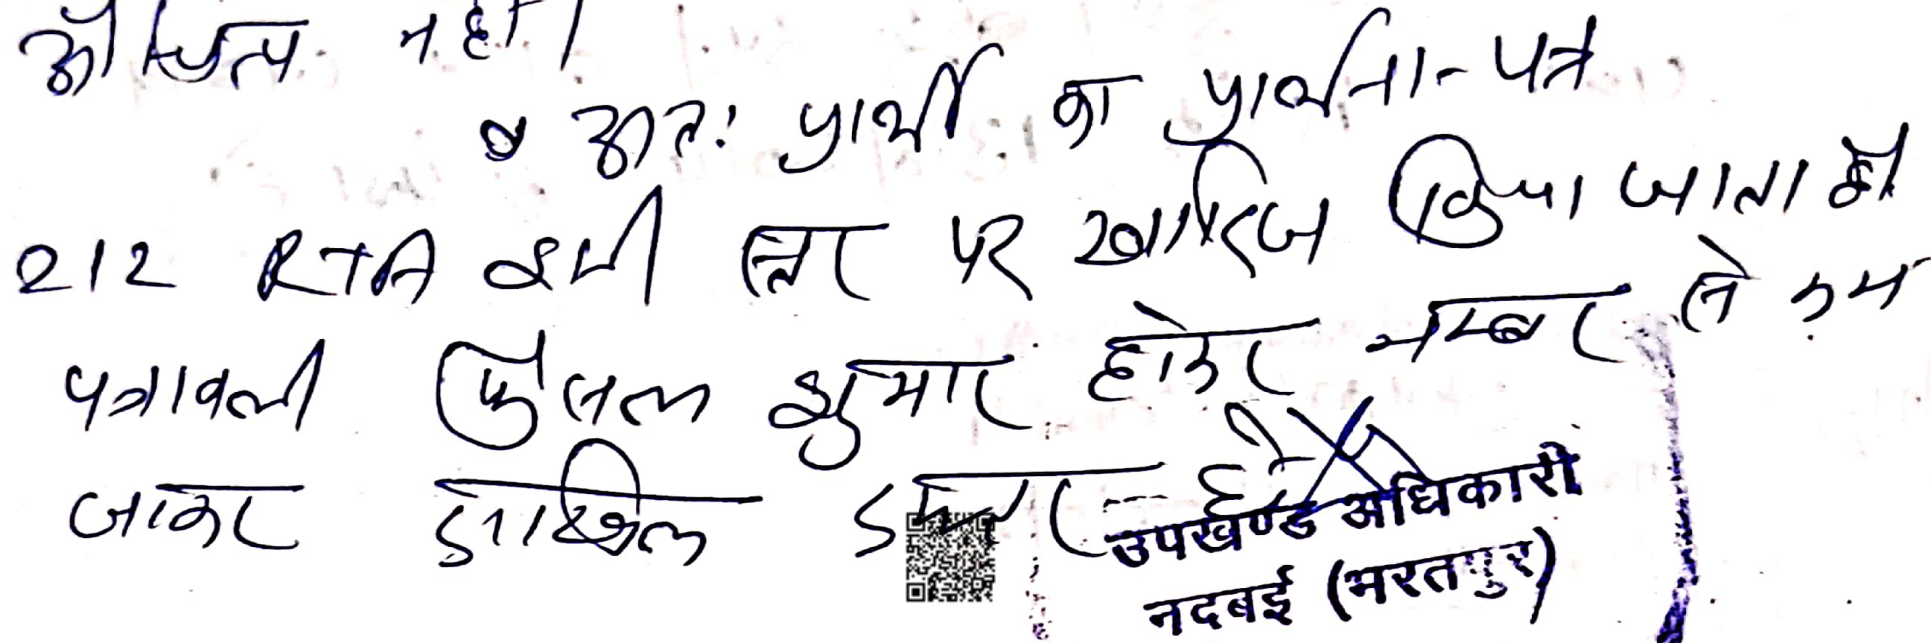 औचित्य नहीं।
अतः प्रार्थी का प्रार्थना-पत्र
212 RTA इसी स्तर पर खारिज किया जाता है
पत्रावली फैसल शुमार होकर नम्बर से कम
जाकर दाखिल दफ्तर हो
उपखण्ड अधिकारी
नदबई (भरतपुर)